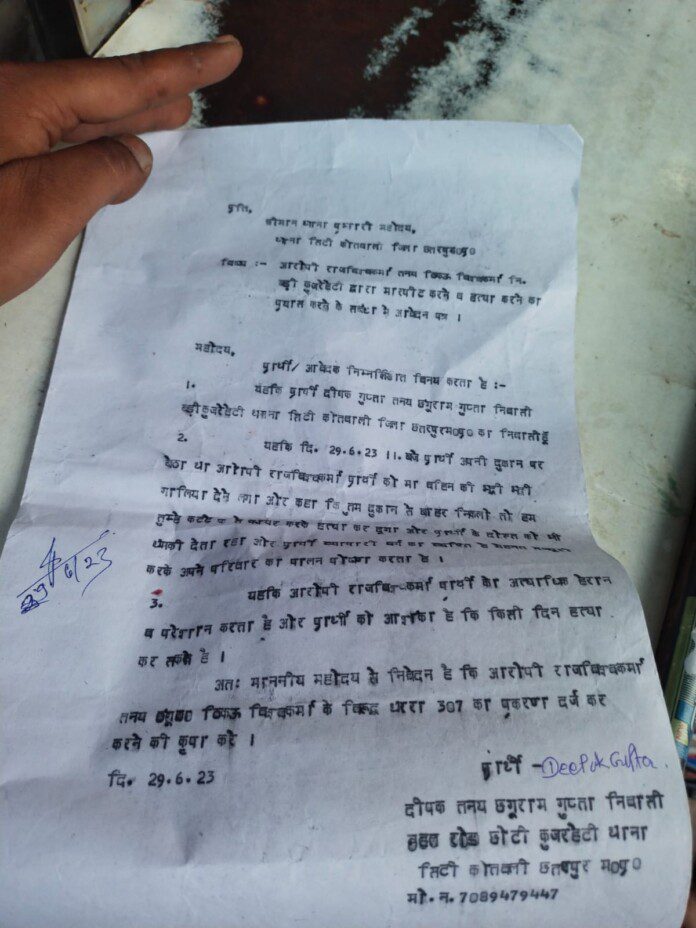 प्रति,
श्रीमान थाना प्रभारी महोदय,
थाना सिटी कोतवाली जिला छतरपुर म०प्र०
विषय :- आरोपी राजविश्वकर्मा तनय विश्वकर्मा नि.
कुजरेहटी द्वारा मारपीट करने व हत्या करने का
प्रयास करने के संबंध मे आवेदन पत्र ।
महोदय,
प्रार्थी/ आवेदक निम्नलिखित विनय करता है :-
1. यहकि प्रार्थी दीपक गुप्ता तनय छगुराम गुप्ता निवासी
कुजरेहटी थाना सिटी कोतवाली जिला छतरपुर म०प्र० का निवासी हूँ
2. यहकि दि. 29.6.23 11. बजे प्रार्थी अपनी दुकान पर
बैठा था आरोपी राजविश्वकर्मा प्रार्थी को मा बहिन की भद्दी भद्दी
गालिया देने लगा और कहा कि तुम दुकान से बाहर निकलो तो हम
तुम्हे हत्या कर दूंगा और प्रार्थी के दोस्त को भी
धमकी देता रहा और प्रार्थी
करके अपने परिवार का पालन पोषण करता है ।
3. यहकि आरोपी राजविश्वकर्मा प्रार्थी को अत्याधिक हैरान
व परेशान करता है और प्रार्थी को आशंका है कि किसी दिन हत्या
कर सकते है ।
अतः माननीय महोदय से निवेदन है कि आरोपी राजविश्वकर्मा
तनय विश्वकर्मा के विरूद्ध धारा 307 का प्रकरण दर्ज कर
करने की कृपा करे ।
दि. 29.6.23
प्रार्थी - Deepak Gupta
दीपक तनय छगुराम गुप्ता निवासी
रोड छोटी कुजरेहटी थाना
सिटी कोतवाली छतरपुर म०प्र०
मो.न.7089479447